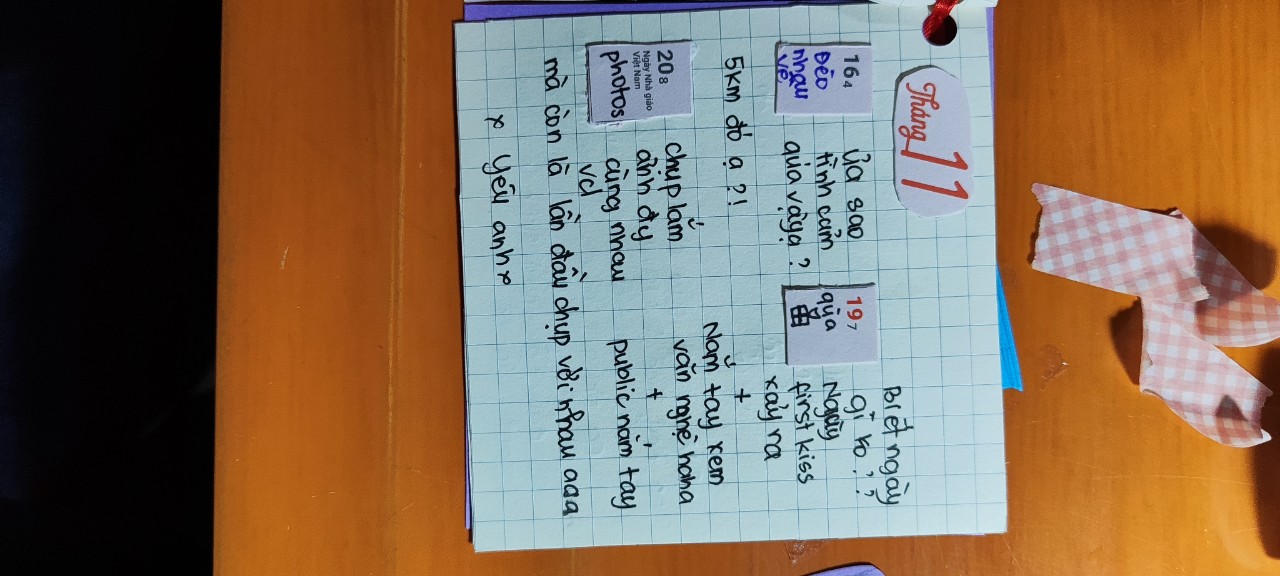 Tháng 11
16 4
Đèo
nhau
về
ủa sao
tình cảm
qúa vậyạ ?
5km đó ạ ?!
19 7
qùa
Biết ngày
gì ko ? ?
Ngày
first kiss
xảy ra
+
Nắm tay xem
văn nghệ haha
+
public nắm tay
20 8
Ngày Nhà giáo
Việt Nam
photos
chụp lắm
ảnh đy
cùng nhau
vcl
mà còn là lần đầu chụp với nhau aaa
x yêu anh x